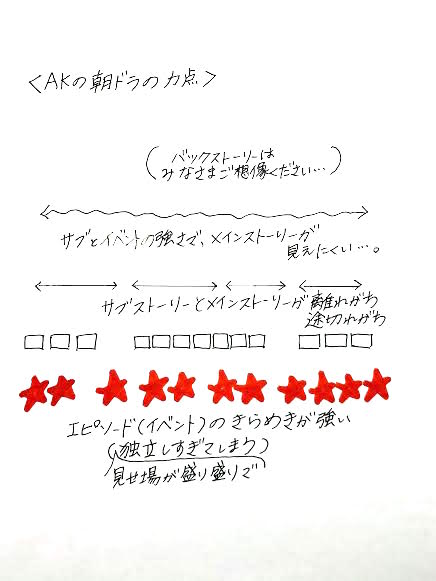 <AKの朝ドラの力点>
(バックストーリーは
みなさまご想像ください…)
サブとイベントの強さで、メインストーリーが
見えにくい…。
サブストーリーとメインストーリーが離れがち
途切れがち
エピソード(イベント)のきらめきが強い
(独立しすぎてしまう)
見せ場が盛り盛りで